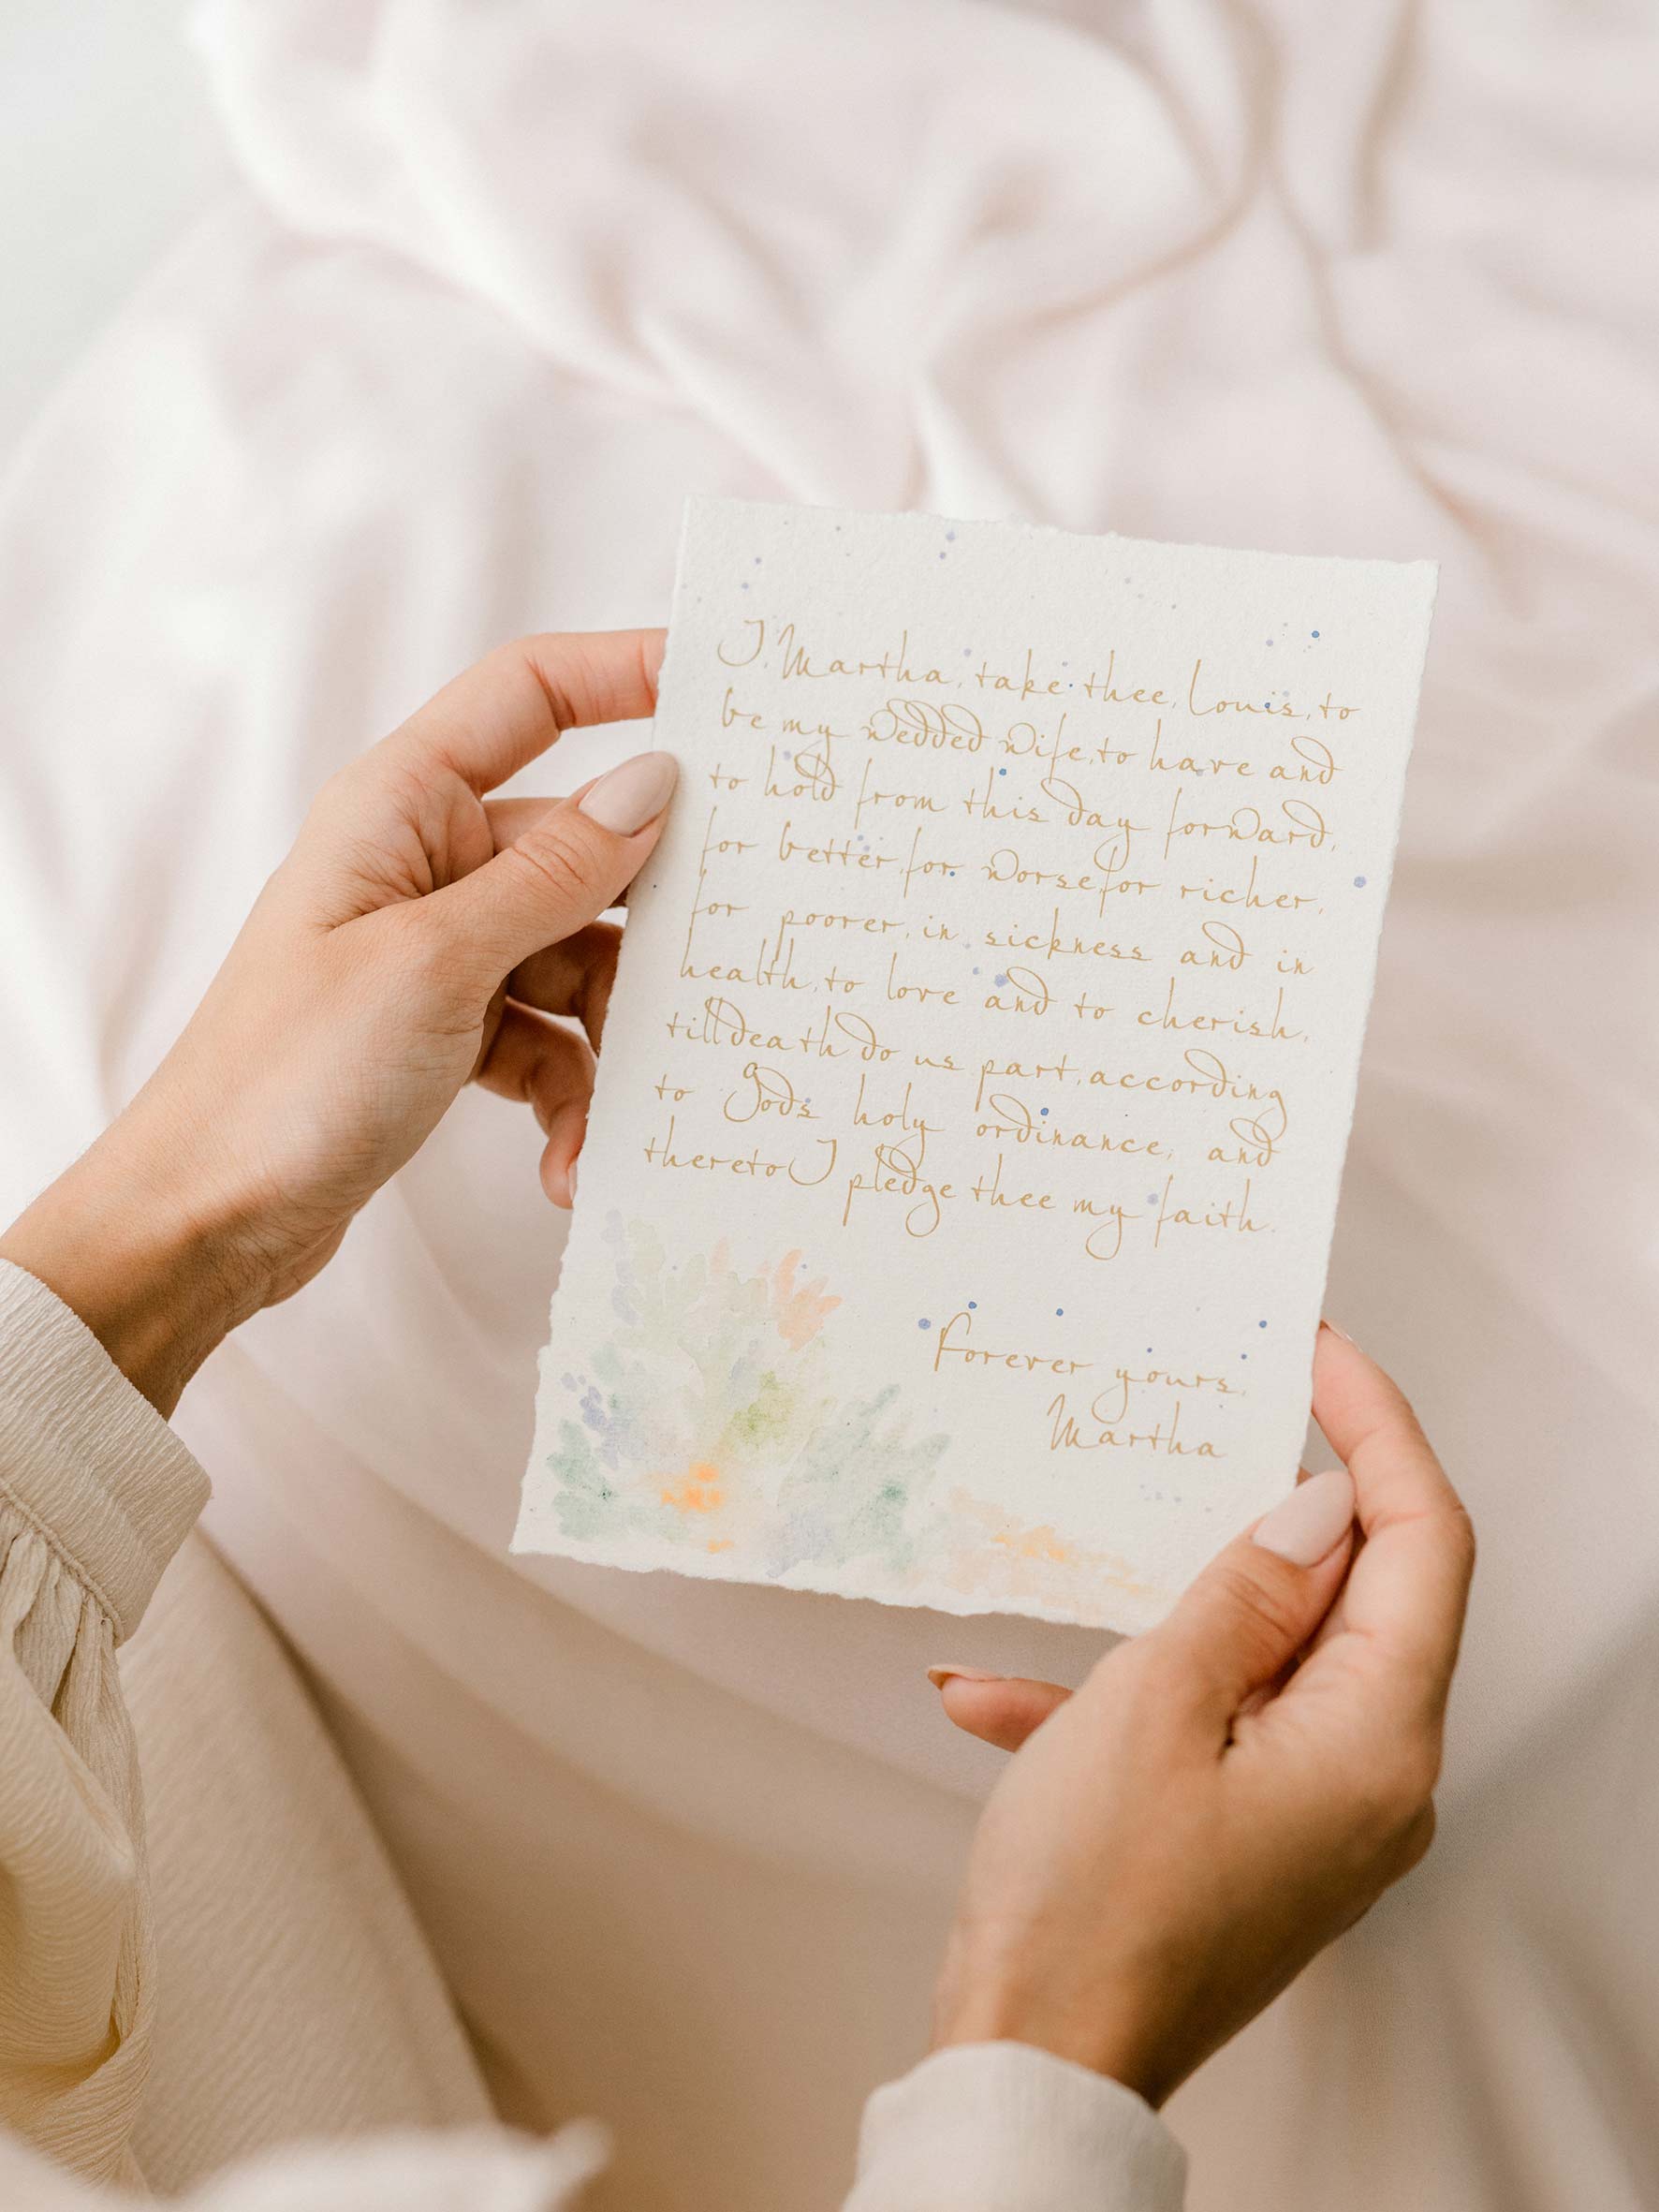 I, Martha, take thee, Louis, to
be my wedded wife, to have and
to hold from this day forward,
for better, for worse, for richer,
for poorer, in sickness and in
health, to love and to cherish,
till death do us part, according
to Gods holy ordinance; and
thereto I pledge thee my faith.
Forever yours,
Martha